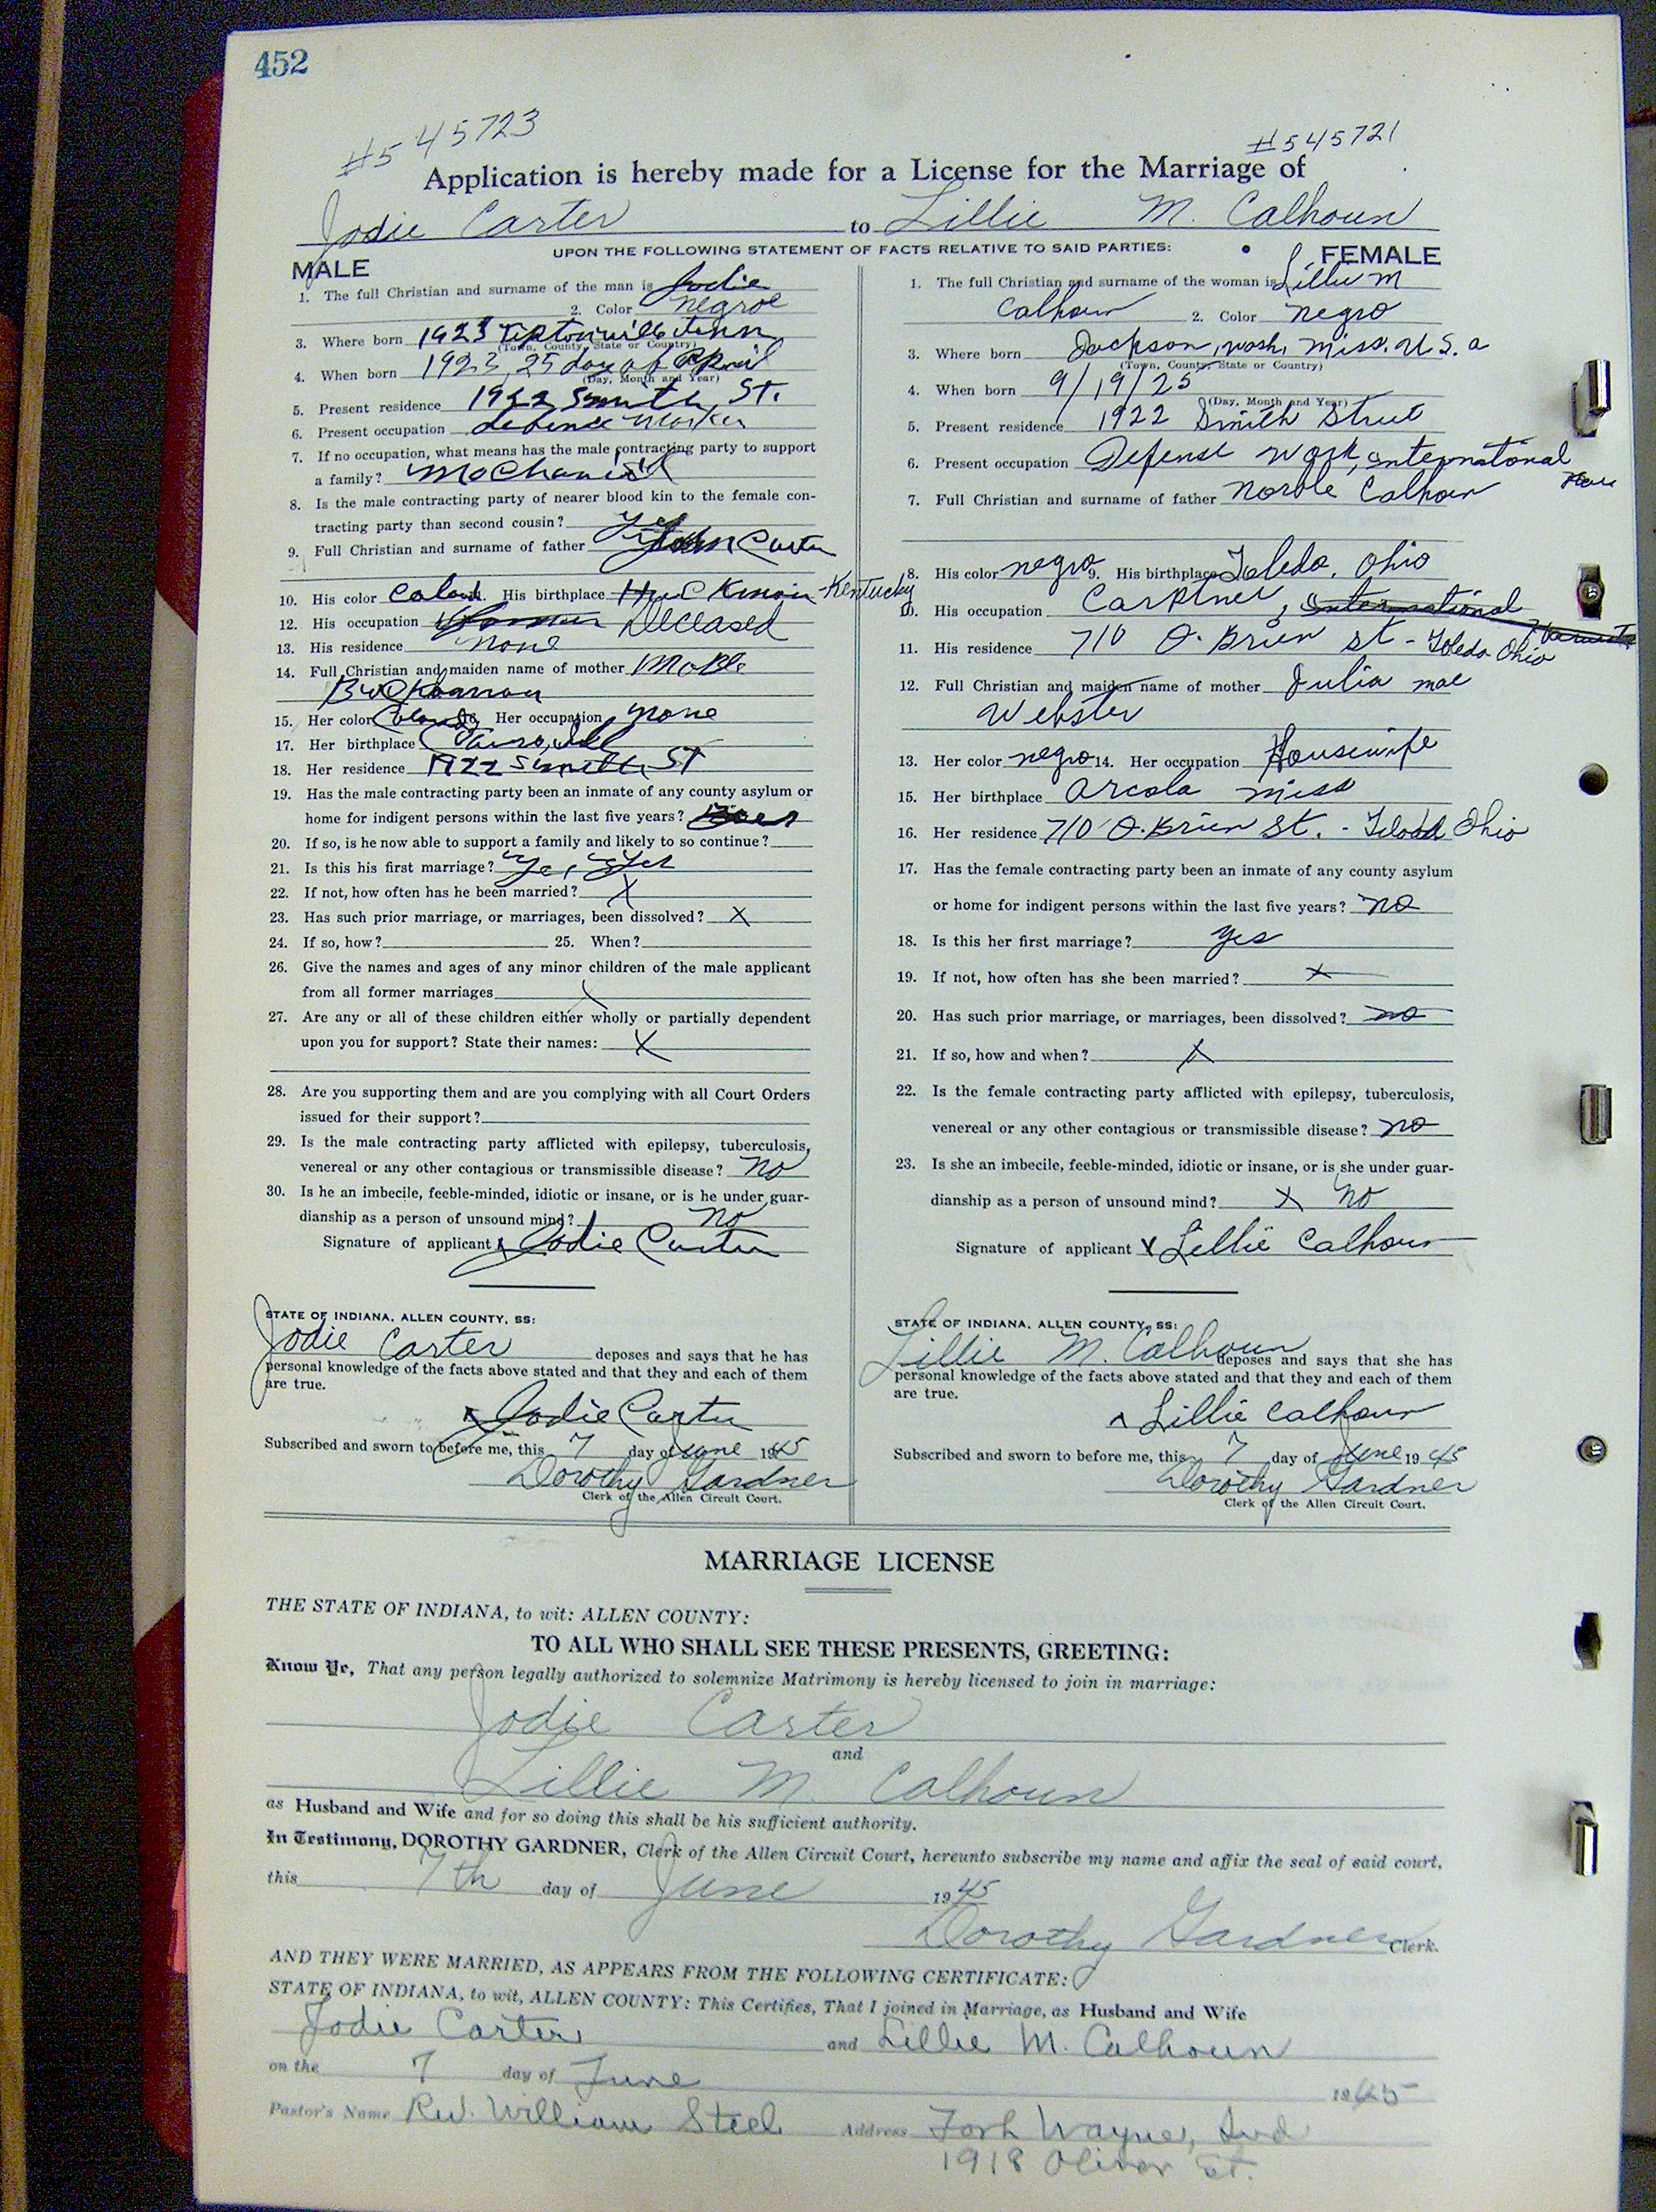 452
#545723
#545721
Application is hereby made for a License for the Marriage of
Jodie Carter to Lillie M. Calhoun
UPON THE FOLLOWING STATEMENT OF FACTS RELATIVE TO SAID PARTIES:
MALE
1. The full Christian and surname of the man is Jodie
2. Color Negroe
3. Where born 1923 Tiptonville Tenn
(Town, County, State or Country)
4. When born 1923, 25 day of April
(Day, Month and Year)
5. Present residence 1922 Smith St.
6. Present occupation defence Worker
7. If no occupation, what means has the male contracting party to support
a family?
8. Is the male contracting party of nearer blood kin to the female con-
tracting party than second cousin?
9. Full Christian and surname of father John Carter
10. His color Colord. His birthplace Kentucky
12. His occupation Deceased
13. His residence none
14. Full Christian and maiden name of mother
15. Her color 16. Her occupation none
17. Her birthplace
18. Her residence 1922 Smith, ST
19. Has the male contracting party been an inmate of any county asylum or
home for indigent persons within the last five years?
20. If so, is he now able to support a family and likely to so continue?
21. Is this his first marriage? yes
22. If not, how often has he been married? X
23. Has such prior marriage, or marriages, been dissolved? X
24. If so, how? 25. When?
26. Give the names and ages of any minor children of the male applicant
from all former marriages
27. Are any or all of these children either wholly or partially dependent
upon you for support? State their names: X
28. Are you supporting them and are you complying with all Court Orders
issued for their support?
29. Is the male contracting party afflicted with epilepsy, tuberculosis,
venereal or any other contagious or transmissible disease? No
30. Is he an imbecile, feeble-minded, idiotic or insane, or is he under guar-
dianship as a person of unsound mind? no
Signature of applicant x Jodie Carter
STATE OF INDIANA, ALLEN COUNTY, SS:
Jodie Carter deposes and says that he has
personal knowledge of the facts above stated and that they and each of them
are true.
x Jodie Carter
Subscribed and sworn to before me, this 7 day of June 1945
Dorothy Gardner
Clerk of the Allen Circuit Court.
FEMALE
1. The full Christian and surname of the woman is Lillie M
Calhoun 2. Color negro
3. Where born Jackson, wash, Miss. U.S.a
(Town, County, State or Country)
4. When born 9/19/25
(Day, Month and Year)
5. Present residence 1922 Smith Street
6. Present occupation Defense work, international
7. Full Christian and surname of father Norvle Calhoun
8. His color negro 9. His birthplace Toledo, Ohio
10. His occupation Carptner, international
11. His residence 710 O. Brien st - Toledo Ohio
12. Full Christian and maiden name of mother Julia mae
Webster
13. Her color negro 14. Her occupation Housewife
15. Her birthplace Arcola miss
16. Her residence 710 O. Brien St. - Ohio
17. Has the female contracting party been an inmate of any county asylum
or home for indigent persons within the last five years? no
18. Is this her first marriage? yes
19. If not, how often has she been married? x
20. Has such prior marriage, or marriages, been dissolved? no
21. If so, how and when? x
22. Is the female contracting party afflicted with epilepsy, tuberculosis,
venereal or any other contagious or transmissible disease? no
23. Is she an imbecile, feeble-minded, idiotic or insane, or is she under guar-
dianship as a person of unsound mind? x no
Signature of applicant x Lillie Calhoun
STATE OF INDIANA, ALLEN COUNTY, SS:
Lillie M. Calhoun deposes and says that she has
personal knowledge of the facts above stated and that they and each of them
are true.
x Lillie Calhoun
Subscribed and sworn to before me, this 7 day of June 1945
Dorothy Gardner
Clerk of the Allen Circuit Court.
MARRIAGE LICENSE
THE STATE OF INDIANA, to wit: ALLEN COUNTY:
TO ALL WHO SHALL SEE THESE PRESENTS, GREETING:
Know Ye, That any person legally authorized to solemnize Matrimony is hereby licensed to join in marriage:
Jodie Carter
and
Lillie M. Calhoun
as Husband and Wife and for so doing this shall be his sufficient authority.
In Testimony, DOROTHY GARDNER, Clerk of the Allen Circuit Court, hereunto subscribe my name and affix the seal of said court,
this 7th day of June 1945
Dorothy Gardner Clerk.
AND THEY WERE MARRIED, AS APPEARS FROM THE FOLLOWING CERTIFICATE:
STATE OF INDIANA, to wit, ALLEN COUNTY: This Certifies, That I joined in Marriage, as Husband and Wife
Jodie Carter and Lillie M. Calhoun
on the 7 day of June 1945
Pastor's Name Rev. William Steel Address Fort Wayne, Ind
1918 Oliver St.